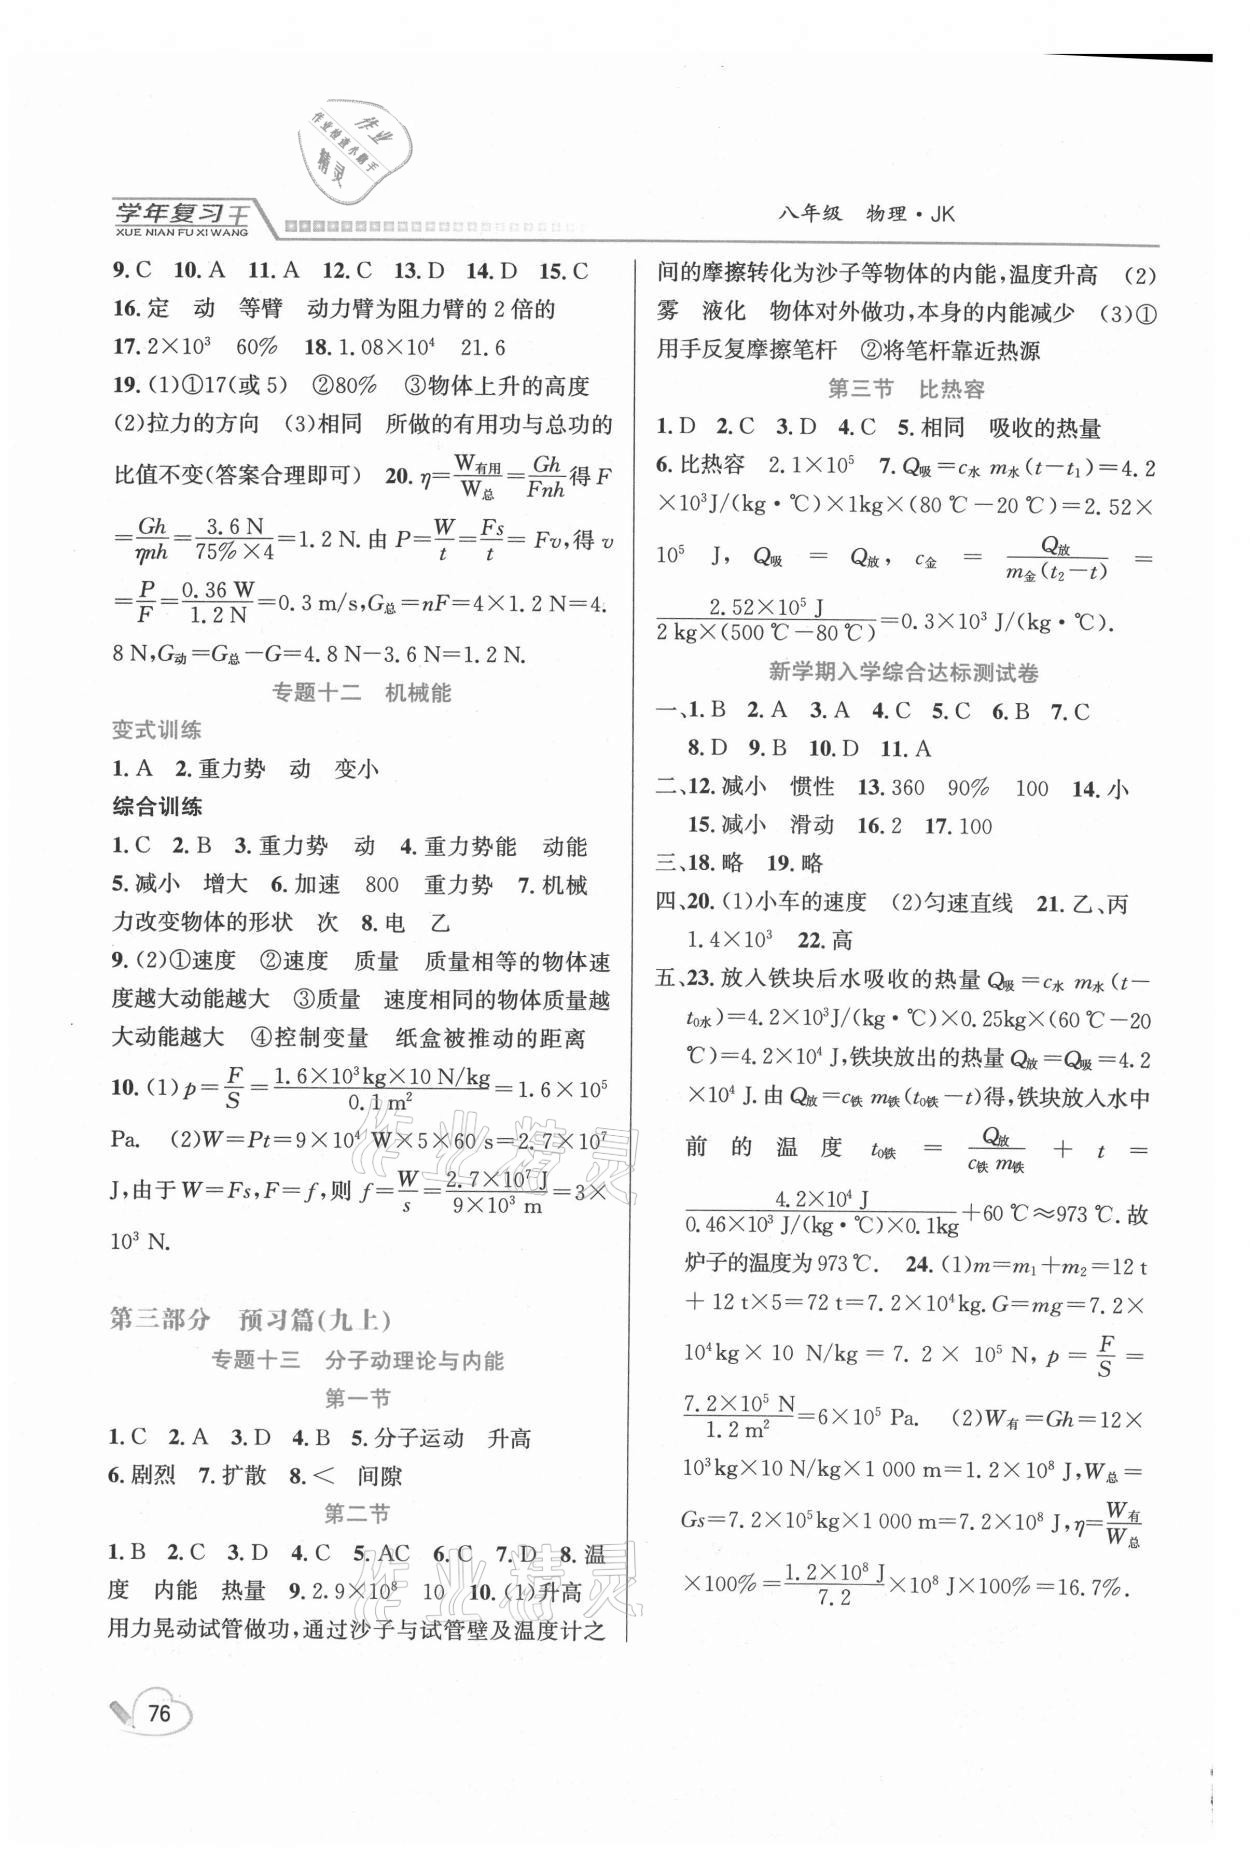 作业
作业检查小助手
精灵
学年复习王
XUE NIAN FU XI WANG
八年级 物理·JK
9.C 10.A 11.A 12.C 13.D 14.D 15.C
16.定 动 等臂 动力臂为阻力臂的2倍的
17.2×10³ 60% 18.1.08×10⁴ 21.6
19.(1)①17(或5) ②80% ③物体上升的高度
(2)拉力的方向 (3)相同 所做的有用功与总功的
比值不变(答案合理即可) 20.η=W有用/W总=Gh/Fnh得F
=Gh/ηnh=3.6 N/75%×4=1.2 N.由P=W/t=Fs/t=Fv,得v
=P/F=0.36 W/1.2 N=0.3 m/s,G总=nF=4×1.2 N=4.
8 N,G动=G总-G=4.8 N-3.6 N=1.2 N.
专题十二 机械能
变式训练
1.A 2.重力势 动 变小
综合训练
1.C 2.B 3.重力势 动 4.重力势能 动能
5.减小 增大 6.加速 800 重力势 7.机械
力改变物体的形状 次 8.电 乙
9.(2)①速度 ②速度 质量 质量相等的物体速
度越大动能越大 ③质量 速度相同的物体质量越
大动能越大 ④控制变量 纸盒被推动的距离
10.(1)p=F/S=1.6×10³kg×10 N/kg/0.1 m²=1.6×10⁵
Pa. (2)W=Pt=9×10⁴ W×5×60 s=2.7×10⁷
J,由于W=Fs,F=f,则f=W/s=2.7×10⁷ J/9×10³ m=3×
10³ N.
第三部分 预习篇(九上)
专题十三 分子动理论与内能
第一节
1.C 2.A 3.D 4.B 5.分子运动 升高
6.剧烈 7.扩散 8.< 间隙
第二节
1.B 2.C 3.D 4.C 5.AC 6.C 7.D 8.温
度 内能 热量 9.2.9×10⁸ 10 10.(1)升高
用力晃动试管做功,通过沙子与试管壁及温度计之
76
间的摩擦转化为沙子等物体的内能,温度升高 (2)
雾 液化 物体对外做功,本身的内能减少 (3)①
用手反复摩擦笔杆 ②将笔杆靠近热源
第三节 比热容
1.D 2.C 3.D 4.C 5.相同 吸收的热量
6.比热容 2.1×10⁵ 7.Q吸=c水 m水(t-t₁)=4.2
×10³J/(kg·℃)×1kg×(80℃-20℃)=2.52×
10⁵ J, Q吸 = Q放, c金 = Q放/m金(t₂-t) =
2.52×10⁵ J/2 kg×(500℃-80℃)=0.3×10³ J/(kg·℃).
新学期入学综合达标测试卷
一、1.B 2.A 3.A 4.C 5.C 6.B 7.C
8.D 9.B 10.D 11.A
二、12.减小 惯性 13.360 90% 100 14.小
15.减小 滑动 16.2 17.100
三、18.略 19.略
四、20.(1)小车的速度 (2)匀速直线 21.乙、丙
1.4×10³ 22.高
五、23.放入铁块后水吸收的热量Q吸=c水 m水(t-
t₀水)=4.2×10³J/(kg·℃)×0.25kg×(60℃-20
℃)=4.2×10⁴ J,铁块放出的热量Q放=Q吸=4.2
×10⁴ J.由Q放=c铁 m铁(t₀铁-t)得,铁块放入水中
前 的 温 度 t₀铁 = Q放/c铁 m铁 + t =
4.2×10⁴ J/0.46×10³ J/(kg·℃)×0.1kg+60℃≈973℃.故
炉子的温度为973℃. 24.(1)m=m₁+m₂=12 t
+12 t×5=72 t=7.2×10⁴kg.G=mg=7.2×
10⁴kg×10 N/kg=7.2×10⁵ N, p=F/S=
7.2×10⁵ N/1.2 m²=6×10⁵ Pa. (2)W有=Gh=12×
10³kg×10 N/kg×1 000 m=1.2×10⁸ J,W总=
Gs=7.2×10⁵kg×1 000 m=7.2×10⁸ J,η=W有/W总
×100%=1.2×10⁸ J/7.2×10⁸ J×100%=16.7%.
作业精灵
作业精灵